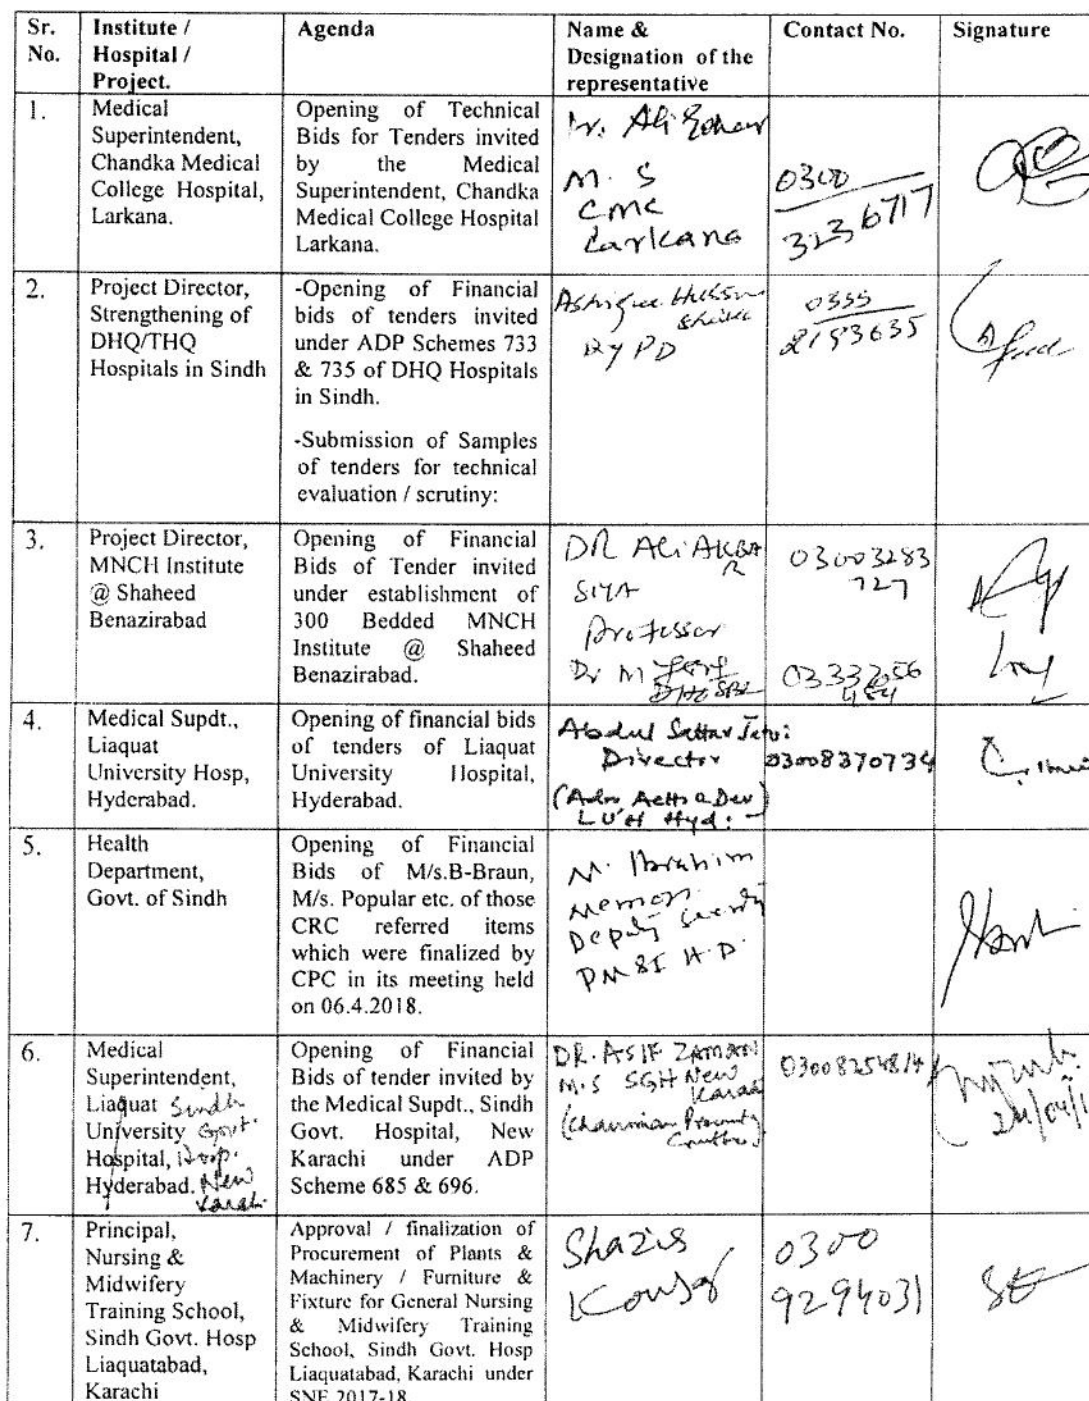 Sr. No.
Institute / Hospital / Project.
Agenda
Name & Designation of the representative
Contact No.
Signature
1.
Medical
Superintendent,
Chandka Medical
College Hospital,
Larkana.
Opening of Technical
Bids for Tenders invited
by the Medical
Superintendent, Chandka
Medical College Hospital
Larkana.
Dr. Ali Gohar
M. S
CMC
Larkana
0300
3236717
2.
Project Director,
Strengthening of
DHQ/THQ
Hospitals in Sindh
-Opening of Financial
bids of tenders invited
under ADP Schemes 733
& 735 of DHQ Hospitals
in Sindh.
-Submission of Samples
of tenders for technical
evaluation / scrutiny:
Dy PD
3.
Project Director,
MNCH Institute
@ Shaheed
Benazirabad
Opening of Financial
Bids of Tender invited
under establishment of
300 Bedded MNCH
Institute @ Shaheed
Benazirabad.
DR ALi AKBAR
SIYA
Professor
Dr M
03003283
727
4.
Medical Supdt.,
Liaquat
University Hosp,
Hyderabad.
Opening of financial bids
of tenders of Liaquat
University Hospital,
Hyderabad.
Abdul Sattar Jatoi
Director
LUH Hyd:
03008370734
5.
Health
Department,
Govt. of Sindh
Opening of Financial
Bids of M/s.B-Braun,
M/s. Popular etc. of those
CRC referred items
which were finalized by
CPC in its meeting held
on 06.4.2018.
M. Ibrahim
Memon
Deputy
H.D.
6.
Medical
Superintendent,
Liaquat Sindh
University Govt.
Hospital, Hosp.
Hyderabad. New
Karachi
Opening of Financial
Bids of tender invited by
the Medical Supdt., Sindh
Govt. Hospital, New
Karachi under ADP
Scheme 685 & 696.
DR. ASIF ZAMAN
M.S SGH New
Karachi
(Chairman
03008254814
7.
Principal,
Nursing &
Midwifery
Training School,
Sindh Govt. Hosp
Liaquatabad,
Karachi
Approval / finalization of
Procurement of Plants &
Machinery / Furniture &
Fixture for General Nursing
& Midwifery Training
School, Sindh Govt. Hosp
Liaquatabad, Karachi under
SNE 2017-18.
Shazia
Kousar
0300
9294031